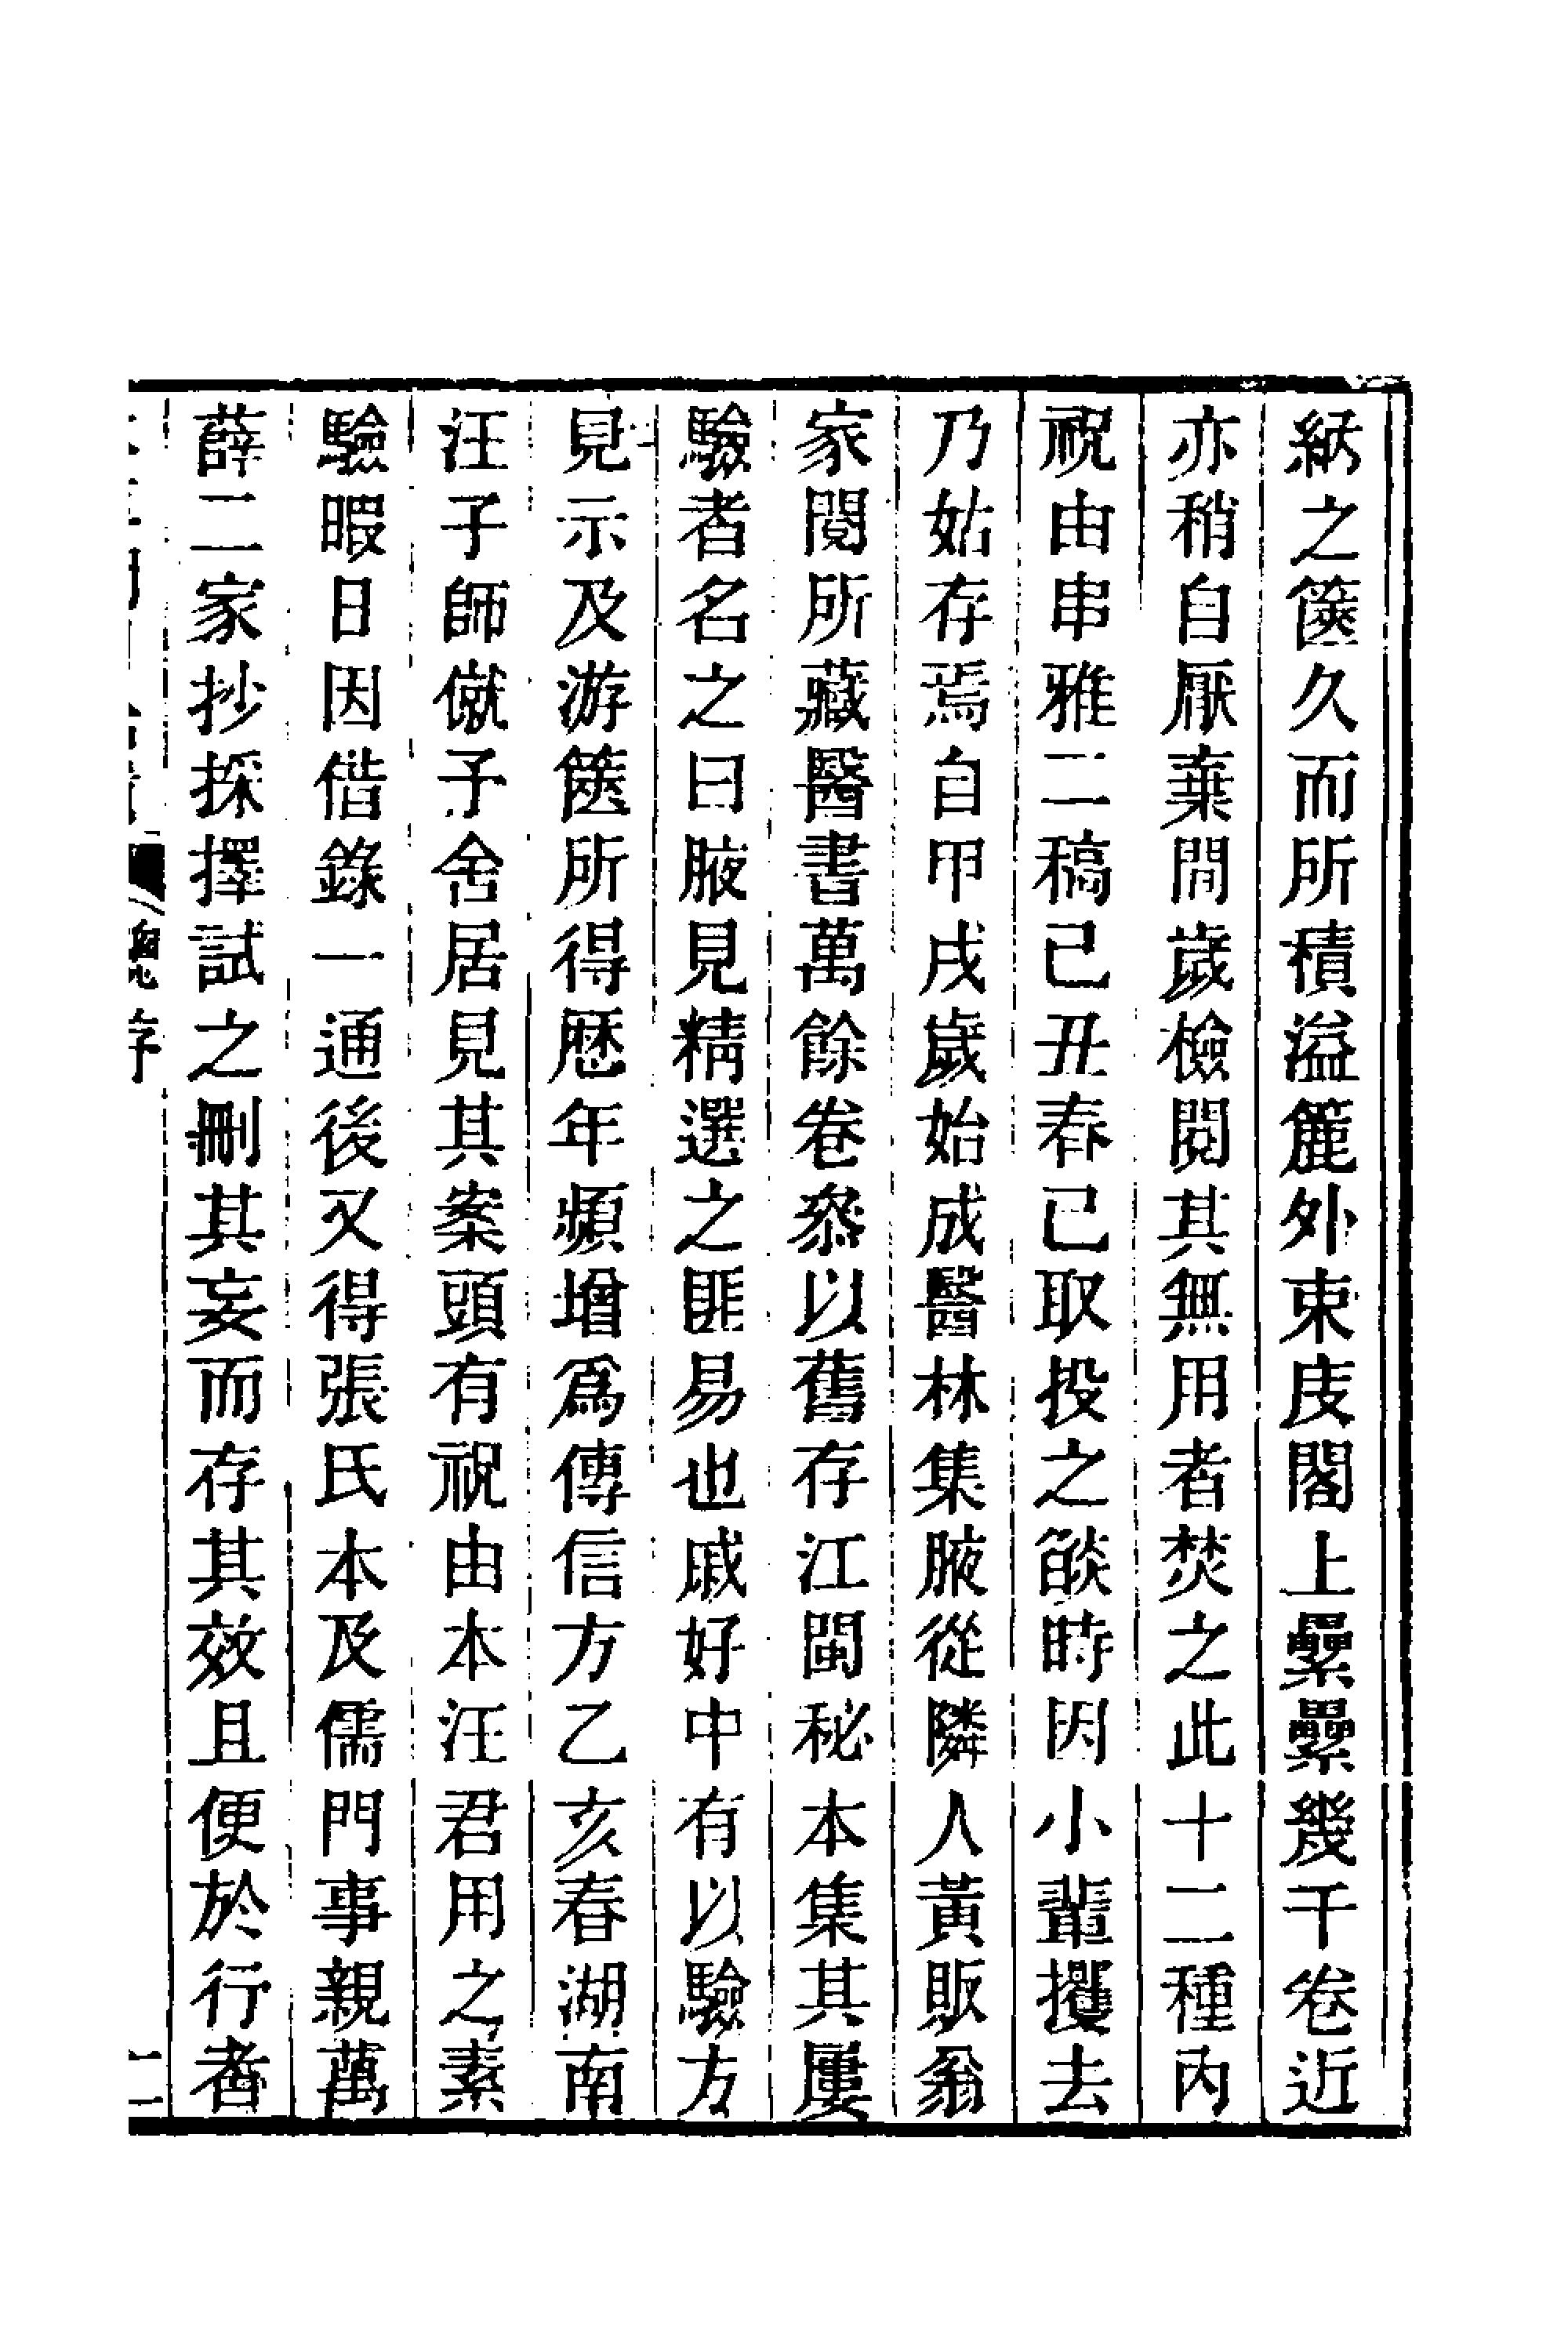 納之篋久而所積溢簏外束庋閣上纍纍幾千卷近
亦稍自厭棄間歲檢閱其無用者焚之此十二種內
祝由串雅二稿己丑春已取投之燄時因小輩攫去
乃姑存焉自甲戌歲始成醫林集腋從隣人黃販翁
家閱所藏醫書萬餘卷叅以舊存江閩秘本集其屢
驗者名之曰腋見精選之匪易也戚好中有以驗方
見示及游篋所得歷年頻增爲傳信方乙亥春湖南
汪子師僦予舍居見其案頭有祝由本汪君用之素
驗暇日因借錄一通後又得張氏本及儒門事親萬
薛二家抄採擇試之刪其妄而存其效且便於行者